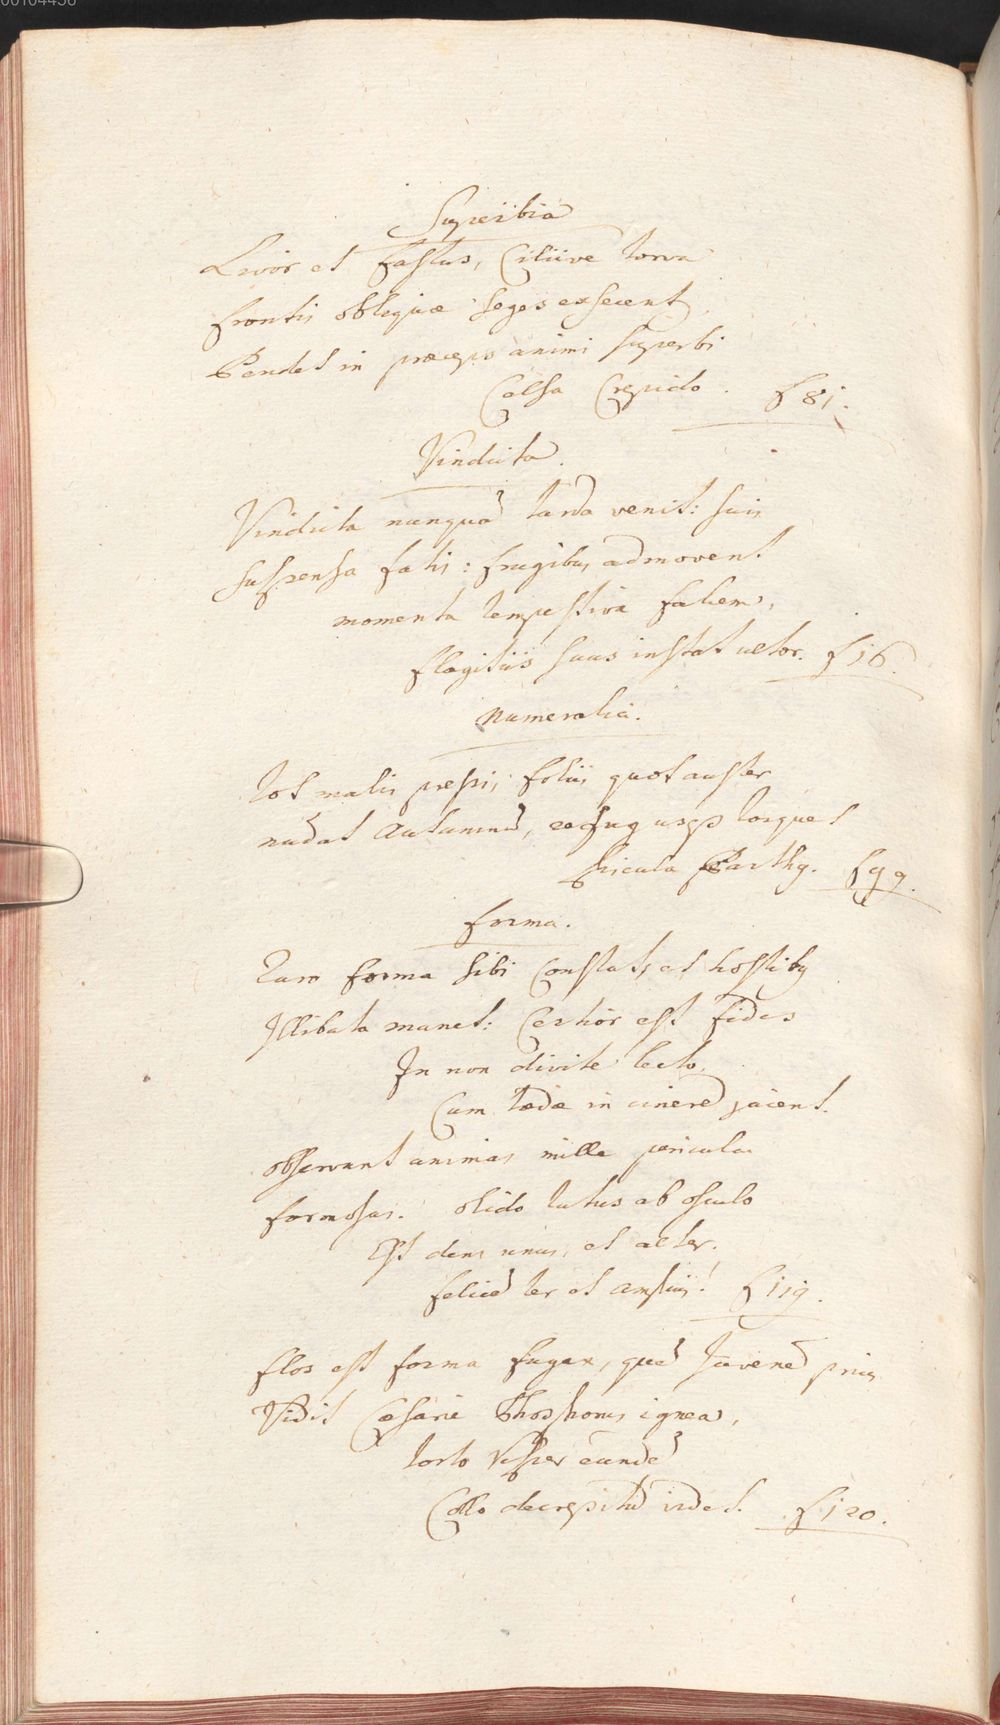 00104436
Superbia
Livor et fastus, Ciliive torva
frontis obliquæ seges exsecent
Pendet in præceps animi superbi
Celsa Crepido. f 81.
Vindicta.
Vindicta nunquā tarda venit: suis
suspensa fatis: frugibus admovent
momenta tempestiva falcem,
flagitiis suus instat ultor. f 16.
Numeralia.
tot malis pressis, foliis quot auster
nudat Autumnū, torquet
spicula Parthus. f 99.
forma.
Raro forma sibi Constat, et hostibus
Illibata manet: Certior est fides
In non divite lecto,
Cum tædæ in cinerē jacent.
observant animas mille pericula
formosas. olido tutus ab osculo
Est dens unus, et alter.
felicē ter et amplius! f 119.
flos est forma fugax, quē Juvenē prius
Vidit Cæsarie Phosphorus ignea,
torto Vesper eundē
Collo decrepitū videt. f 120.